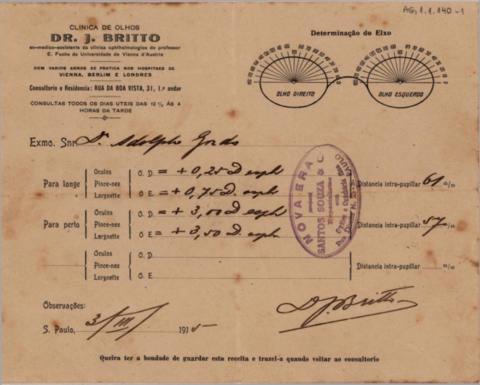 AG. 1. 1. 140 - 1
CLINICA DE OLHOS
DR. J. BRITTO
ex-medico-assistente da clinica ophthalmologica do professor
E. Fuchs da Universidade de Vienna d'Austria
COM VARIOS ANNOS DE PRATICA NOS HOSPITAES DE
VIENNA, BERLIM E LONDRES
Consultorio e Residencia: RUA DA BOA VISTA, 31, 1.º andar
CONSULTAS TODOS OS DIAS UTEIS DAS 12 ½ ÁS 4
HORAS DA TARDE
Determinação do Eixo
OLHO DIREITO
OLHO ESQUERDO
Exmo. Snr. Dr. Adolpho Gordo
Para longe
Oculos
Pince-nez
Lorgnette
O. D. = + 0,25 D esph
O. E. = + 0,75 D esph
Distancia intra-pupillar 61 m/m
Para perto
Oculos
Pince-nez
Lorgnette
O. D. = + 3,00 D esph
O. E. = + 3,50 D esph
Distancia intra-pupillar 57 m/m
Oculos
Pince-nez
Lorgnette
O. D.
O. E.
Distancia intra-pupillar m/m
NOVA ERA
SANTOS SOUZA & C.
S. PAULO
Observações:
S. Paulo, 3/III/ 1915
Dr J Britto
Queira ter a bondade de guardar esta receita e trazel-a quando voltar ao consultorio